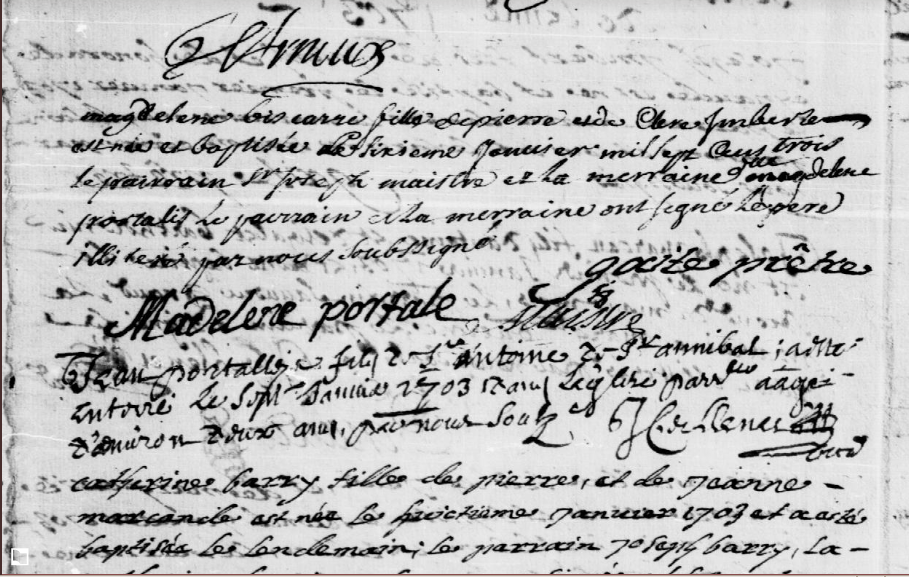 Arnoux
magdelene biscarre fille de pierre et de Clere Imberte
est née et baptisée le sixieme Janvier mil sept Cens trois
le parrain Sr Joseph maistre et la merraine dlle magdelene
portalis le parrain et la merraine ont signé le pere
illiteré par nous soubsigné
prêtre
Madelene portale Maistre
Jean portallis fils de Sr antoine de Sr annibal a esté
entorré le sept Janvier 1703 dans leglise aagé
d'environ deux ans, par nous soubz né
catherine barry fille de pierre, et de Jeanne
marcande est née le huictieme Janvier 1703 et a esté
baptisée le lendemain; le parrain Joseph barry, la